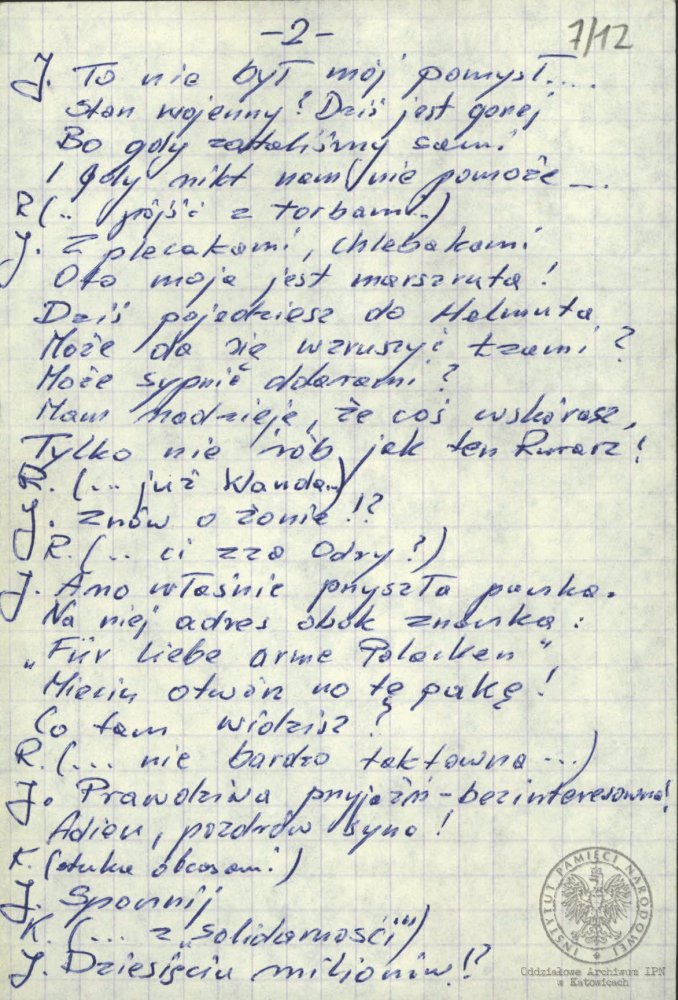 -2-
7/12
J. To nie był mój pomysł....
Stan wojenny! Dziś jest gorzej
Bo gdy zostaliśmy sami
I gdy nikt nam nie pomoże...
R (.. pójść z torbami..)
J. Z plecakami, chlebakami
Oto moja jest marszruta!
Dziś pojedziesz do Helmuta
Może da się wzruszyć łzami?
Może sypnie dolarami?
Mam nadzieję, że coś wskórasz,
Tylko nie rób jak ten Rurarz!
R. (... już Wanda..)
J. Znów o żonie!?
R. (.. ci zza Odry?)
J. Ano właśnie przyszła paczka.
Na niej adres obok znaczka:
„Für liebe arme Polacken"
Mieciu otwórz no tę pakę!
Co tam widzisz?
R. (... nie bardzo taktowna ...)
J. Prawdziwa przyjaźń - bezinteresowna!
Adieu, pozdrów syna!
K. (stuka obcasami)
J. Spocznij
K. (... z „Solidarności")
J. Dziesięciu milionów!?
INSTYTUT PAMIĘCI NARODOWEJ
Oddziałowe Archiwum IPN
w Katowicach